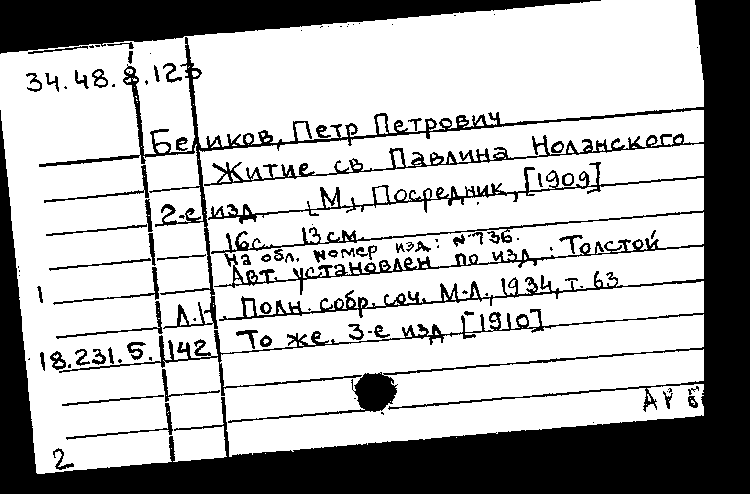 34.48.8.123
Беликов, Петр Петрович
Житие св. Павлина Ноланского
2-е изд. [М.], Посредник, [1909]
16с. 13см.
На обл. номер изд.: №736.
Авт. установлен по изд.: Толстой
1
Л.Н. Полн. собр. соч. М-Л., 1934, т. 63
18.231.5.142 То же. 3-е изд. [1910]
2